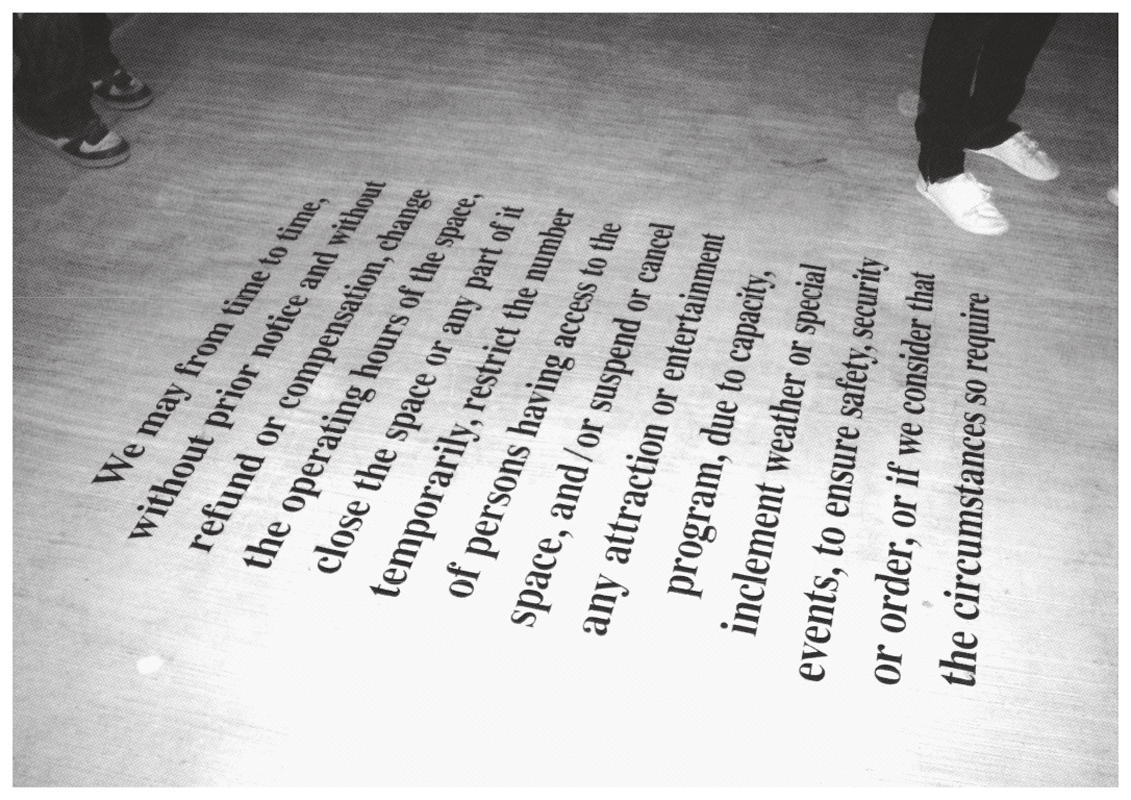 We may from time to time,
without prior notice and without
refund or compensation, change
the operating hours of the space,
close the space or any part of it
temporarily, restrict the number
of persons having access to the
space, and/or suspend or cancel
any attraction or entertainment
program, due to capacity,
inclement weather or special
events, to ensure safety, security
or order, or if we consider that
the circumstances so require